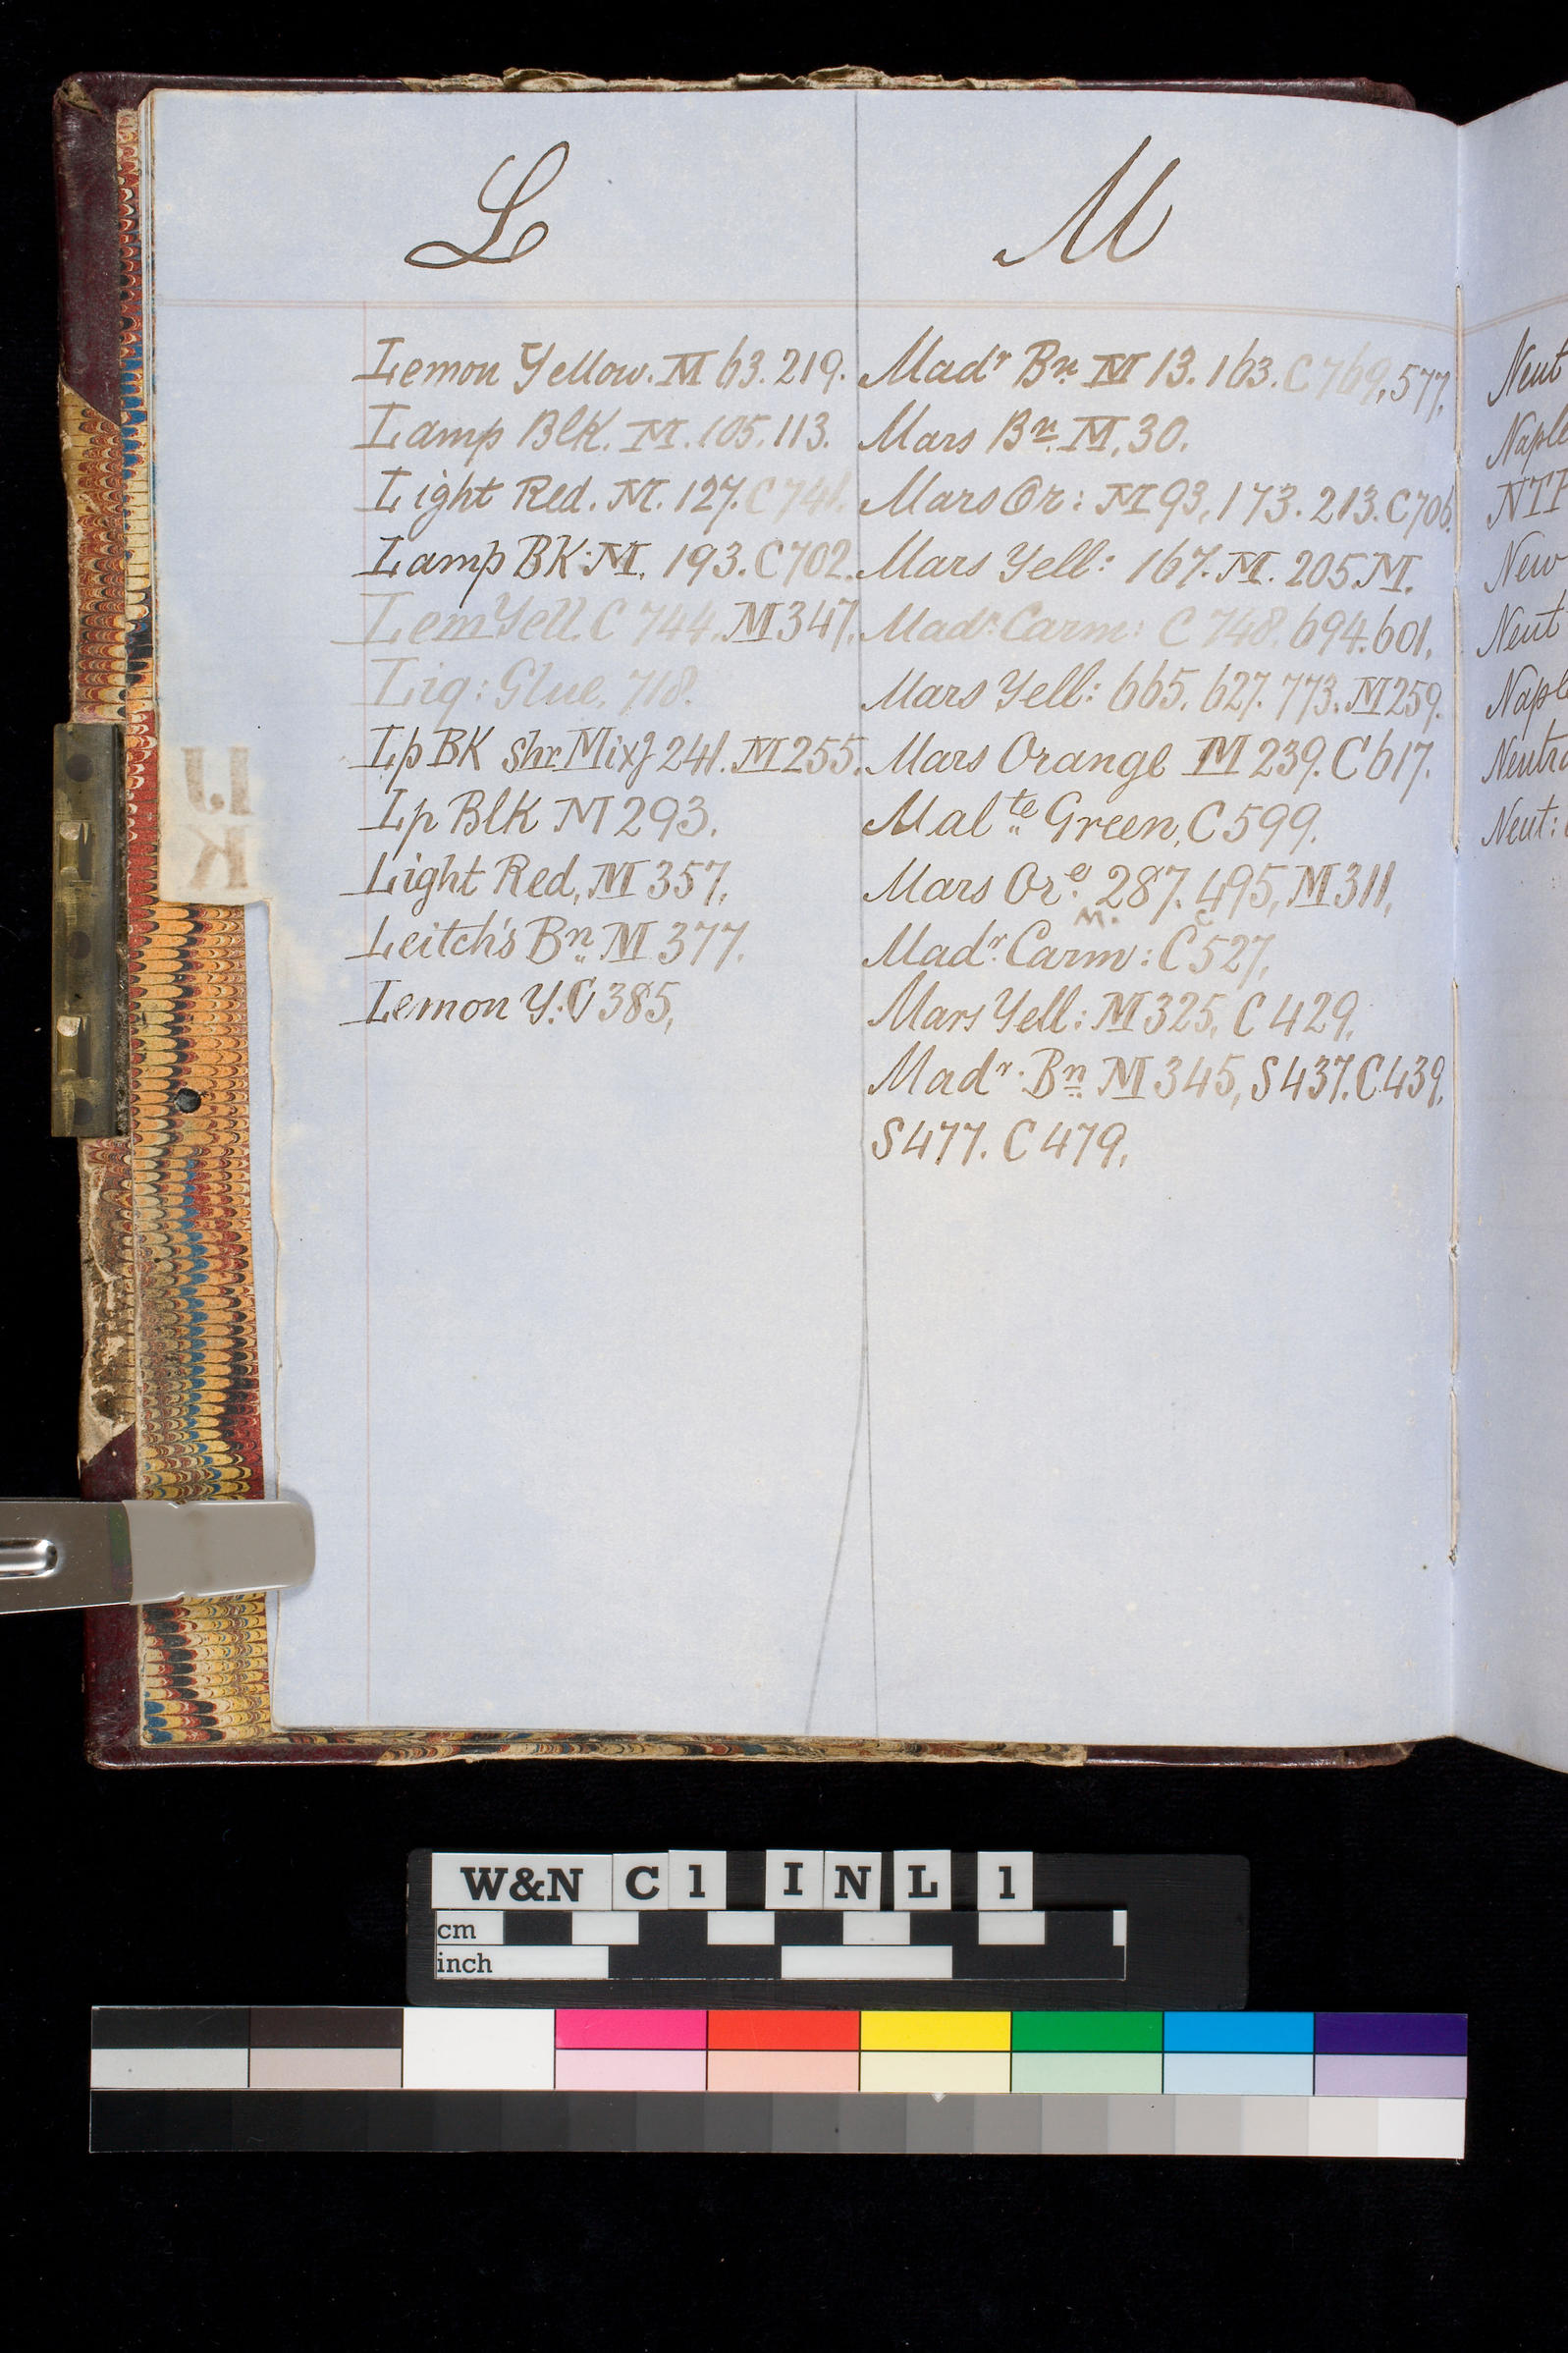 L
Lemon Yellow. M 63. 219.
Lamp Blk. M. 105. 113.
Light Red. M. 127. C 741.
Lamp BK: M. 193. C 702.
Lem Yell. C 744. M 347.
Liq: Glue. 718.
Lp BK Shr Mixg 241. M 255.
Lp Blk M 293.
Light Red, M 357,
Leitch's Bn M 377.
Lemon Y: C 385,
M
Madr Bn. M 13. 163. C 769, 577,
Mars Bn. M. 30.
Mars Or: M 93, 173. 213. C 706.
Mars Yell: 167. M. 205. M.
Madr. Carm: C 748. 694. 601,
Mars Yell: 665. 627. 773. M 259.
Mars Orange M 239. C 617.
Malte Green, C 599.
Mars Ore. 287. 495, M 311,
M. C
Madr. Carm: C 527,
Mars Yell: M 325, C 429,
Madr. Bn M 345, S 437. C 439,
S 477. C 479,
Neut
Naple
New
Neut
Napl
Neutra
Neut:
IJ
K
W&N C1 INL 1
cm
inch